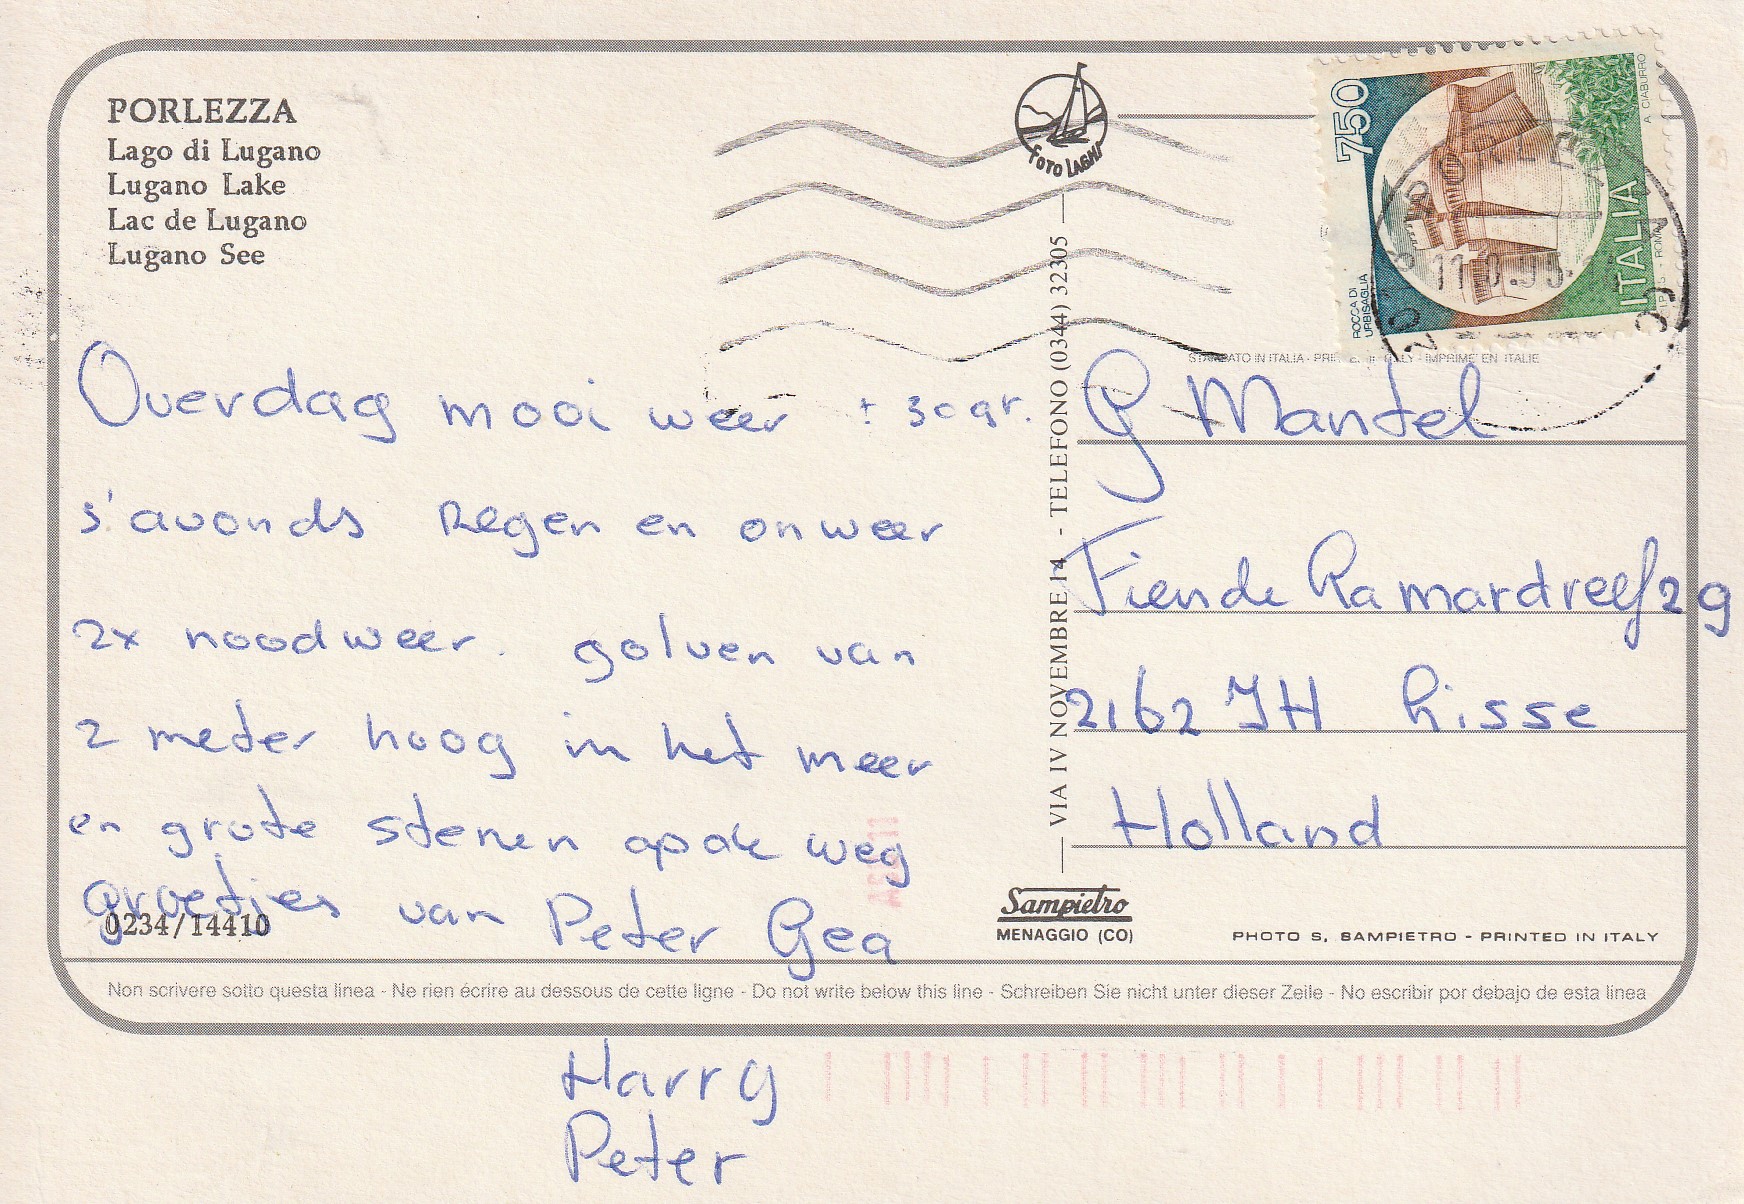 PORLEZZA
Lago di Lugano
Lugano Lake
Lac de Lugano
Lugano See
FOTO LAGHI
750
ITALIA
ROCCA DI
URBISAGLIA
A. CIABURRO
I.P.Z.S. - ROMA
VIA IV NOVEMBRE 14 - TELEFONO (0344) 32305
STAMPATO IN ITALIA - ITALY - IMPRIME' EN ITALIE
Overdag mooi weer ± 30 gr.
s'avonds Regen en onweer
2x noodweer. golven van
2 meter hoog in het meer
en grote stenen op de weg
groetjes van Peter Gea
Harry
Peter
G Mantel
Fien de La mardreef 29
2162 JH Lisse
Holland
0234/14410
Sampietro
MENAGGIO (CO)
PHOTO S. SAMPIETRO - PRINTED IN ITALY
Non scrivere sotto questa linea - Ne rien écrire au dessous de cette ligne - Do not write below this line - Schreiben Sie nicht unter dieser Zeile - No escribir por debajo de esta linea